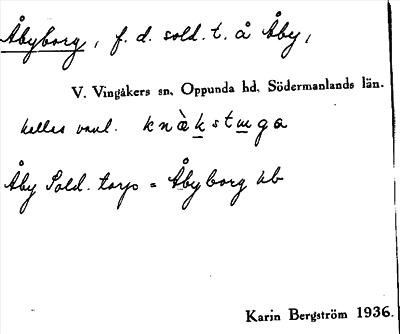 Åbyborg, f. d. sold. t. å Åby,
V. Vingåkers sn, Oppunda hd, Södermanlands län.
kallas vanl. knàkstuga
Åby Sold. torp = Åbyborg kb
Karin Bergström 1936.